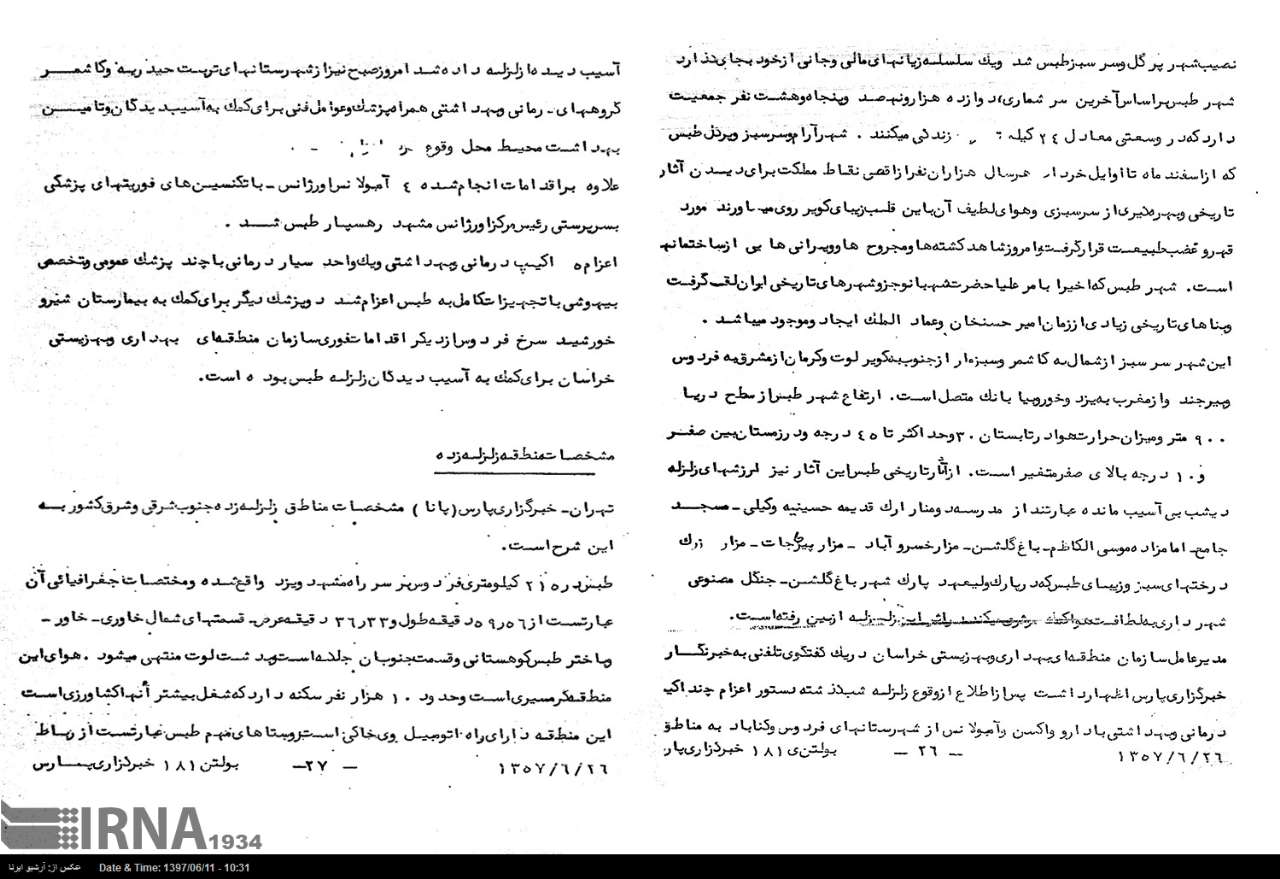 نصیب شهر پر گل و سر سبز طبس شد ویک سلسله زیانهای مالی وجانی از خود بجای گذارد
شهر طبس بر اساس آخرین سر شماری دوازده هزار ونهصد وپنجاه وهشت نفر جمعیت
دارد که در وسعتی معادل ٢٤ کیلو زندگی میکنند . شهر آرام وسرسبز وپرگل طبس
که از اسفند ماه تا اوایل خرداد هر سال هزاران نفر از اقصی نقاط مملکت برای دیدن آثار
تاریخی وبهره گیری از سرسبزی وهوای لطیف آن باین قلب زیبای کویر روی میآورند مورد
قهر و غضب طبیعت قرار گرفت وامروز شاهد کشته ها ومجروح ها وویرانی ها یی از ساختمانها
است. شهر طبس که اخیرا با مر علیا حضرت شهبانو جزو شهر های تاریخی ایران لقب گرفت
وبنا های تاریخی زیادی از زمان امیر حسنخان وعماد الملك ایجاد وموجود میباشد .
این شهر سر سبز از شمال به کاشمر وسبزوار از جنوب به کویر لوت وکرمان از مشرق به فردوس
وبیرجند واز مغرب به یزد وخور وبیابانك متصل است. ارتفاع شهر طبس از سطح دریا
٩٠٠ متر ومیزان حرارت هوا در تابستان ٣٠ وحد اکثر تا ٤٥ درجه ودر زمستان بین صفر
و ١٠ درجه بالای صفر متغیر است. از آثار تاریخی طبس این آثار نیز لرزشهای زلزله
دیشب بی آسیب مانده عبارتند از مدرسه دو منار ارك قدیمه حسینیه وکیلی - مسجد
جامع - امامزاده موسی الکاظم - باغ گلشن - مزار خسرو آباد - مزار پیرحاجات - مزار
درختهای سبز وزیبای طبس که در پارك ولیعهد پارك شهر باغ گلشن - جنگل مصنوعی
شهر داری به لطافت هوا کمک میکند بر اثر این زلزله از بین رفته است.
مدیر عامل سازمان منطقه ای بهداری وبهزیستی خراسان در یك گفتگوی تلفنی به خبرنگار
خبرگزاری پارس اظهار داشت پس از اطلاع از وقوع زلزله شب گذشته دستور اعزام چند اکیپ
درمانی وبهداشتی با دارو واکسن وآمبولانس از شهرستانهای فردوس وگناباد به مناطق
١٣٥٧/٦/٢٦ — ٢٦ — بولتن ١٨١ خبرگزاری پار
آسیب دیده از زلزله داده شد امروز صبح نیز از شهرستانهای تربت حیدریه وکاشمر
گروههای - درمانی وبهداشتی همراه پزشك وعوامل فنی برای کمك به آسیب دیدگان وتامین
بهداشت محیط محل وقوع
علاوه بر اقدامات انجام شده ٤ آمبولانس اورژانس - با تکنسین های فوریتهای پزشکی
بسرپرستی رئیس مرکز اورژانس مشهد رهسپار طبس شد .
اعزام ٥ اکیپ درمانی وبهداشتی ویك واحد سیار درمانی با چند پزشك عمومی وتخصصی
بیهوشی با تجهیزات کامل به طبس اعزام شد دو پزشك دیگر برای کمك به بیمارستان شیر و
خورشید سرخ فردوس از دیگر اقدامات فوری سازمان منطقه ای بهداری وبهزیستی
خراسان برای کمك به آسیب دیدگان زلزله طبس بوده است.
مشخصات منطقه زلزله زده
تهران - خبرگزاری پارس (پانا) مشخصات مناطق زلزله زده جنوب شرقی وشرق کشور به
این شرح است.
طبس در ٢١٥ کیلومتری فردوس بر سر راه مشهد ویزد واقع شده ومختصات جغرافیائی آن
عبارتست از ٥٦ و ٥٩ دقیقه طول و ٣٣ و ٣٦ دقیقه عرض - قسمتهای شمال خاوری - خاور -
وباختر طبس کوهستانی وقسمت جنوب آن جلگه است وبدشت لوت منتهی میشود . هوای این
منطقه گرمسیری است وحدود ١٠ هزار نفر سکنه دارد که شغل بیشتر آنها کشاورزی است
این منطقه دارای راه اتومبیل روی خاکی است روستا های مهم طبس عبارتست از رباط
١٣٥٧/٦/٢٦ — ٢٧ — بولتن ١٨١ خبرگزاری پارس
IRNA 1934
عکس از: آرشیو ایرنا Date & Time: 1397/06/11 - 10:31